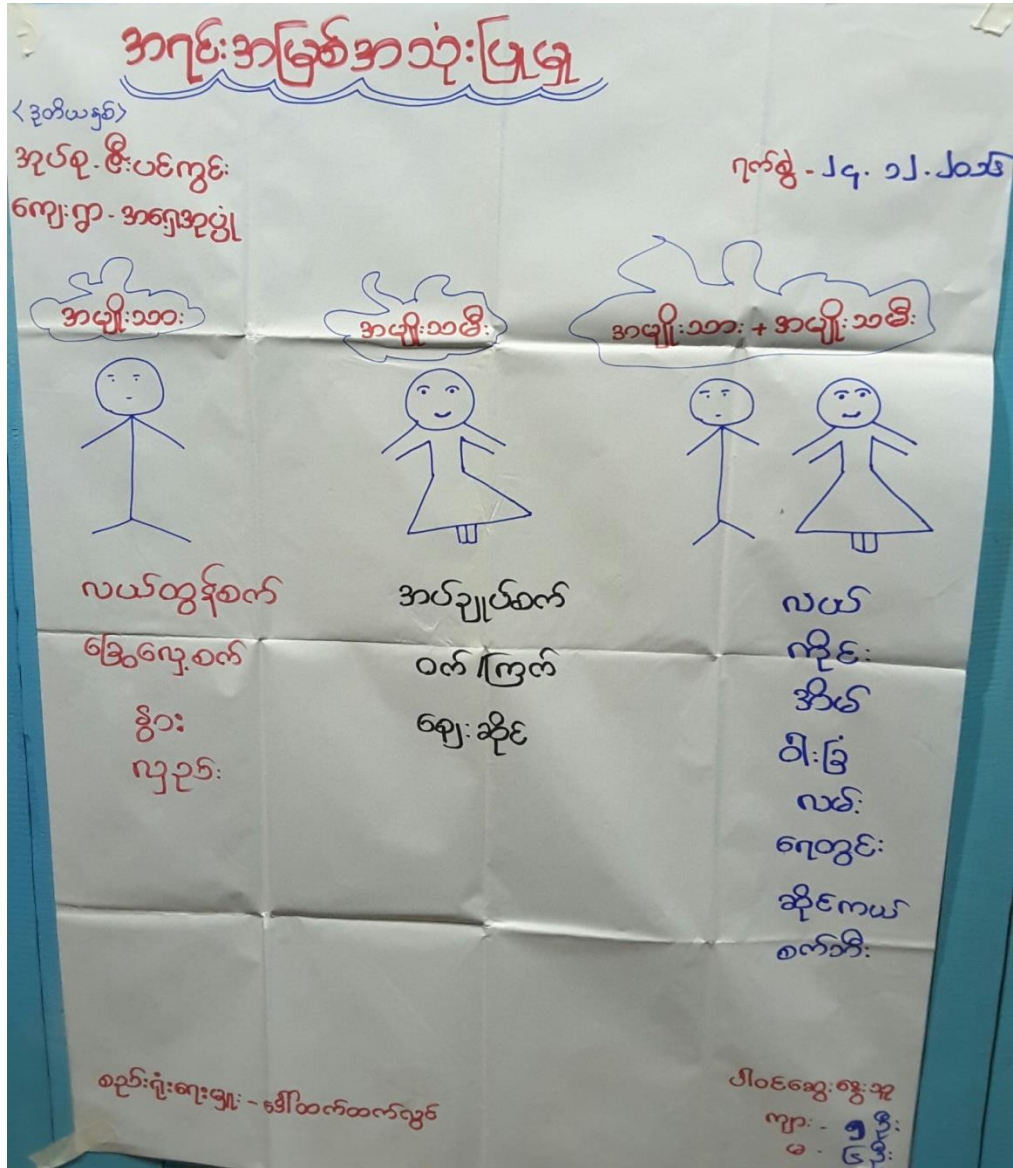 အရင်းအမြစ်အသုံးပြုမှု
<ဒုတိယနှစ်>
အုပ်စု - ဇီးပင်ကွင်း
ရက်စွဲ - ၂၄. ၁၂. ၂၀၁၆
ကျေးရွာ - အရှေ့အုပ်ပုံ
အမျိုးသား
အမျိုးသမီး
အမျိုးသား + အမျိုးသမီး
လယ်ထွန်စက်
ခြွေလှေ့စက်
နွား
လှည်း
အပ်ချုပ်စက်
ဝက်/ကြက်
ဈေးဆိုင်
လယ်
ကိုင်း
အိမ်
ဝါးခြံ
လမ်း
ရေတွင်း
ဆိုင်ကယ်
စက်ဘီး
စည်းရုံးရေးမှူး - ဒေါ်ထက်ထက်လွင်
ပါဝင်ဆွေးနွေးသူ
ကျား - ၅ ဦး
မ - ဦး